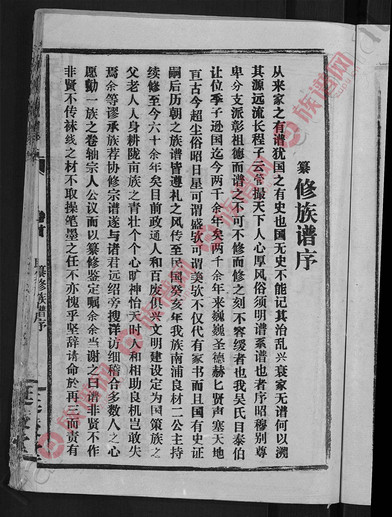 纂修族谱序
从来家之有谱犹国之有史也国无史不能记其治乱兴衰家无谱何以溯
其源远流长程子云管摄天下人心厚风俗须明谱系谱也者序昭穆别尊
卑分支派彰祖德而谱之不可不修而修之刻不容缓者也我吴氏自泰伯
让位季子逊国迄今两千余年矣两千余年来巍巍圣德赫匕贤声塞天地
亘古今超尘俗昭日星可谓盛欤可谓美欤不仅代有家书而且国有史证
嗣后历朝之族谱皆遵礼之风传至民国癸亥年我族南浦良材二公主持
续修至今六十余年矣目前政通人和百废俱兴文明建设定为国策族之
父老人人身耕陇亩族之青壮个个心旷神怡天时人和相助良机岂敢失
焉余等谬承族荐协修宗谱遂与诸君远绍旁搜详访细稽合多数人之心
愿勷一族之卷轴宗人公议而以纂修鉴定嘱余余当谢之曰谱非贤不作
非贤不传袜线之材不取操笔墨之任不亦愧乎坚辞请命於再三而责有
纂修族谱序